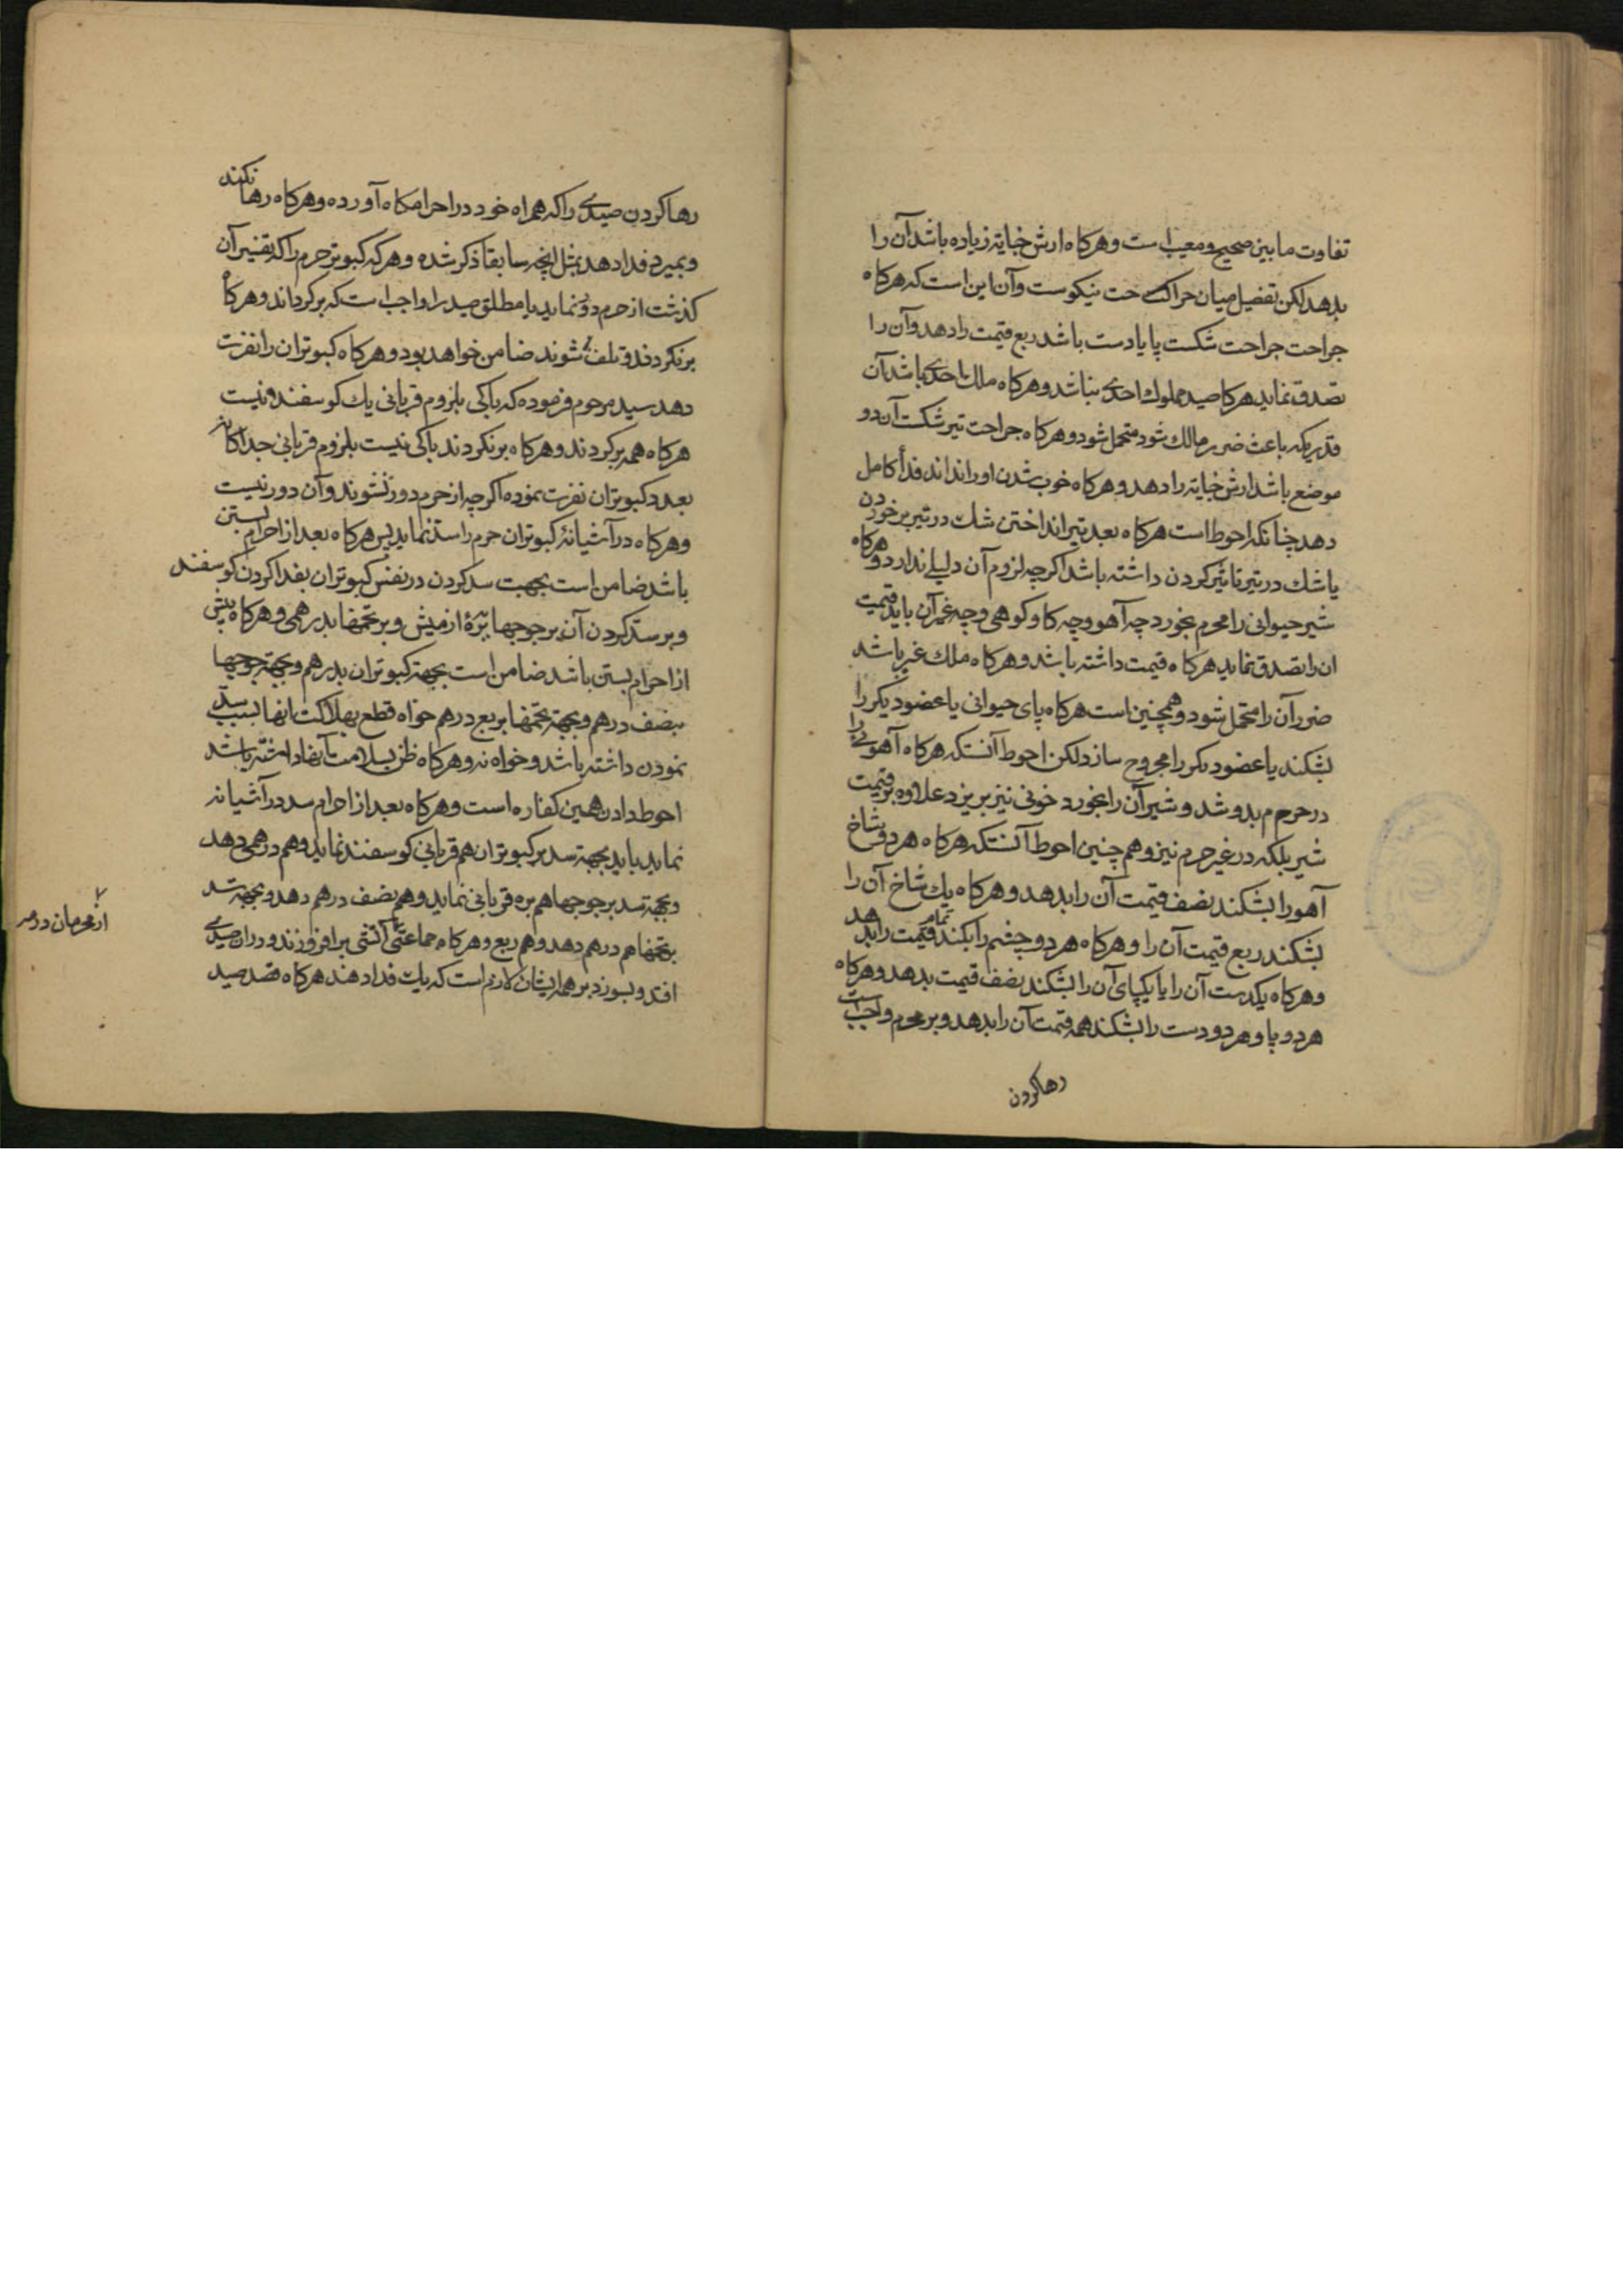 تفاوت ما بین صحیح و معیب است و هرکاه ارش خیانة زیاده باشد آن را
بدهد لکن تفصیل میان جراحت نیکوست و آن این است که هرکاه
جراحت جراحت شکست پا یا دست باشد ربع قیمت را دهد و آن را
تصدق نماید هرکا صید مملوک احدی نباشد و هرکاه ملک احدی باشد آن
قدریکه باعث ضرر مالک شود متحمل شود و هرکاه جراحت تیر شکست آن دو
موضع باشد ارش خیانة را دهد و هرکاه خوب شدن او را نداند فدأ کامل
دهد چنانکه احوط است هرکاه بعد تیر انداختن شک در تیر بر خوردن
یا شک در تیر تاثیر کردن داشته باشد اکرچه لزوم آن دلیلے ندارد و هرکاه
شیر حیوانی را محرم بخورد چه آهو و چه کاو کوهی و چه غیر آن باید قیمت
ان را تصدق نماید هرکاه قیمت داشته باشد و هرکاه ملک غیر باشد
ضرر آن را متحمل شود و همچنین است هرکاه پای حیوانی یا عضو دیکر را
بشکند یا عضو دیکر را مجروح سازد لکن احوط آنستکه هرکاه آهوئے را
در حرم بدوشد و شیر آن را بخورد خونی نیز بریزد علاوه بر قیمت
شیر بلکه در غیر حرم نیز و هم چنین احوط آنستکه هرکاه هر دو شاخ
آهو را بشکند نصف قیمت آن را بدهد و هرکاه یک شاخ آن را
بشکند ربع قیمت آن را و هرکاه هر دو چشم را بکند تمام قیمت را بدهد
و هرکاه یکدست آن را یا یکپای آن را بشکند نصف قیمت بدهد و هرکاه
هر دو پا و هر دو دست را بشکند همه قیمت آن را بدهد و بر محرم واجب است
رها کردن
رها کردن صیدے را که همراه خود در احرامکاه آورده و هرکاه رها نکند
و بمیرد فدا دهد بمثل انچه سابقا ذکر شده و هر که کبوتر حرم را که تفسیر آن
کذشت از حرم دور نماید یا مطلق صید را واجب است که بر کرداند و هرکاه
بر نکردند و تلف شوند ضامن خواهد بود و هرکاه کبوتران را نفرت
دهد سید مرحوم فرموده که باکی بلزوم قربانی یک کوسفند و نیست
هرکاه همه بر کردند و هرکاه بر نکردند باکی نیست بلزوم قربانی جداکانه
بعدد کبوتران نفرت نموده اکرچه از حرم دور نشوند و آن دور نیست
و هرکاه در آشیانۀ کبوتران حرم را سد نماید پس هرکاه بعد از احرام بستن
باشد ضامن است بجهت سد کردن در نفس کبوتران بفدا کردن کوسفند
و بر سد کردن آن بر جوجها ببرۀ از میش و بر تخمها بدرهمی و هرکاه پیش
از احرام بستن باشد ضامن است بجهة کبوتران بدرهم و بجهة جوجها
بنصف درهم و بجهة تخمها بربع درهم خواه قطع بهلاکت انها بسبب سد
نمودن داشته باشد و خواه نه و هرکاه ظن بسلامت آنها داشته باشد
احوط دادن همین کفاره است و هرکاه بعد از احرام سد در آشیانه
نماید باید بجهة سد بر کبوتران هم قربانی کوسفند نماید و هم درهمی دهد
و بجهة سد بر جوجها هم بره قربانی نماید و هم نصف درهم دهد و بجهة سد
بتخمها هم درهم دهد و هم ربع و هرکاه جماعتی آتشی بر افروزند و در ان صیدے
از محرمان در حرم
افتد و بسوزد بر همه ایشان لازم است که یک فدا دهند هرکاه قصد صید